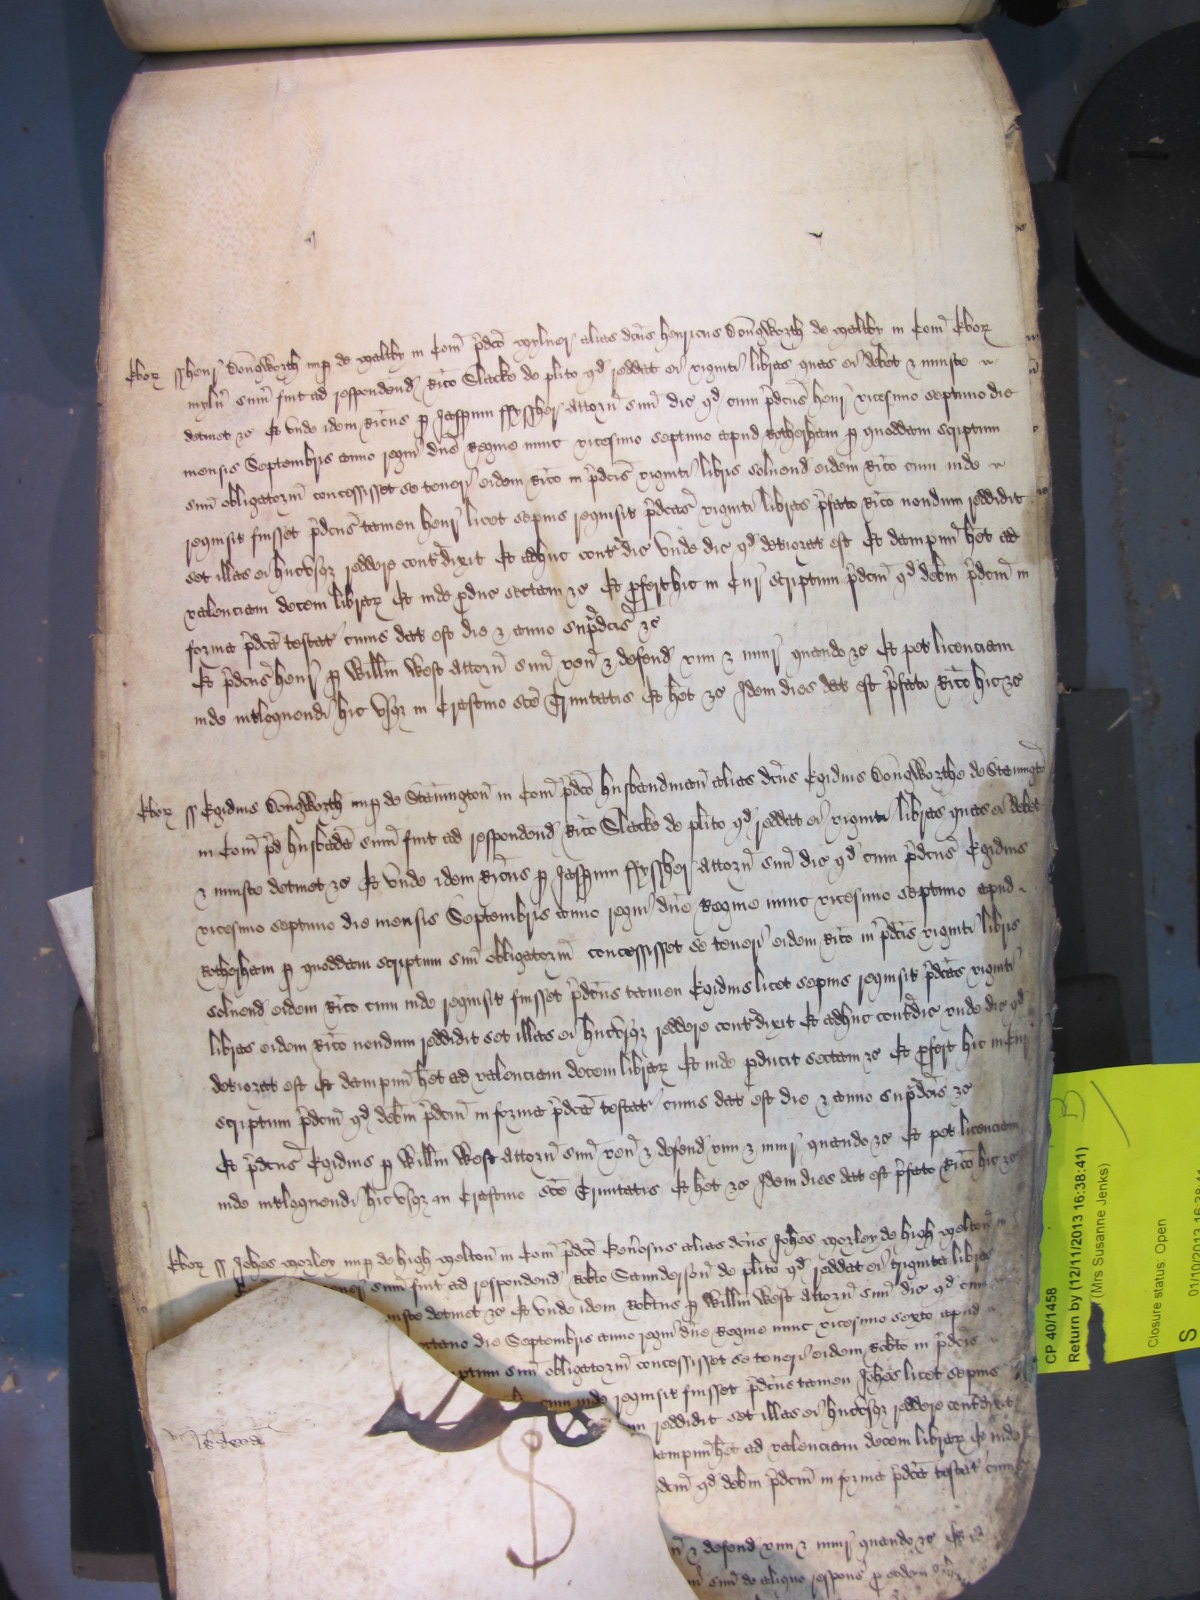 Ebor ss Henr Dongworth nup de Maltby in Com p̄dco Mylner alias dcus Henricus Dongworth de Maltby in Com Ebor
myln sum fuit ad respondend Rico Slacke de plito qd reddat ei viginti libras quas ei debet & iniuste
detinet &c Et unde idem Ricus p Jasperum ffyssher attorn suu dic qd cum p̄dcus Henr vicesimo septimo die
mensis Septembris anno regni dne Regine nunc vicesimo septimo apud Rotherham p quoddam scriptum
suu obligatoriu concessisset se teneri eidem Rico in p̄dcis viginti libris solvend eidem Rico cum inde
requisit fuisset p̄dcus tamen Henr licet sepius requisit p̄dcas viginti libras p̄fato Rico nondum reddidit
set illas ei hucusqz reddere contradixit Et adhuc contradic unde dic qd deteriorat est Et dampnu het ad
valenciam decem librar Et inde produc sectam &c Et profert hic in Cur scriptum p̄dcm qd debm p̄dcm in
forma p̄dca testat cuius dat est die & anno sup̄dcis &c
Et p̄dcus Henr p Willm West attorn suu ven & defend vim & iniur quando &c Et pet licenciam
inde intloquendi hic usqz in Crastino sce Trinitatis Et het &c Idem dies dat est p̄fato Rico hic &c
Ebor ss Egidius Dongworth nup de Stannington in Com p̄dco husbandman alias dcus Egidius Dongworthe de Stanington
in Com p̄d husbada sum fuit ad respondend Rico Slacke de plito qd reddat ei viginti libras quas ei debet
& iniuste detinet &c Et unde idem Ricus p Jasperum ffyssher attorn suu dic qd cum p̄dcus Egidius
vicesimo septimo die mensis Septembris anno regni dne Regine nunc vicesimo septimo apud
Rotherham p quoddam scriptum suu obligatoriu concessisset se teneri eidem Rico in p̄dcis viginti libris
solvend eidem Rico cum inde requisit fuisset p̄dcus tamen Egidius licet sepius requisit p̄dcas viginti
libras eidem Rico nondum reddidit set illas ei hucusqz reddere contradixit Et adhuc contradic unde dic qd
deteriorat est Et dampnu het ad valenciam decem librar Et inde producit sectam &c Et profert hic in Cur
scriptum p̄dcm qd debm p̄dcm in forma p̄dca testat cuius dat est die & anno sup̄dcis &c
Et p̄dcus Egidius p Willm West attorn suu ven & defend vim & iniur quando &c Et pet licenciam
inde intloquendi hic usqz in Crastino sce Trinitatis Et het &c Idem dies dat est p̄fato Rico hic &c
Ebor ss Johes Morley nup de High Melton in Com p̄dco generosus alias dcus Johes Morley de High Melton
sum fuit ad respondend Robto Saunderson de plito qd reddat ei triginta libras
iuste detinet &c Et unde idem Robtus p Willm West attorn suu dic qd cum
octavo die Septembris anno regni dne Regine nunc vicesimo sexto apud
ptum suu obligatoriu concessisset se teneri eidem Robto in p̄dcis
cum inde requisit fuisset p̄dcus tamen Johes licet sepius
reddidit set illas ei hucusqz reddere contradixit
dampnu het ad valenciam decem librar Et inde
p̄dcm qd debm p̄dcm in forma p̄dca testat cuius
& defend vim & iniur quando &c Et
suu de aliquo respons p eodem
CP 40/1458
Return by (12/11/2013 16:38:41)
(Mrs Susanne Jenks)
Closure status: Open
S
01/10/2013 16:38:41